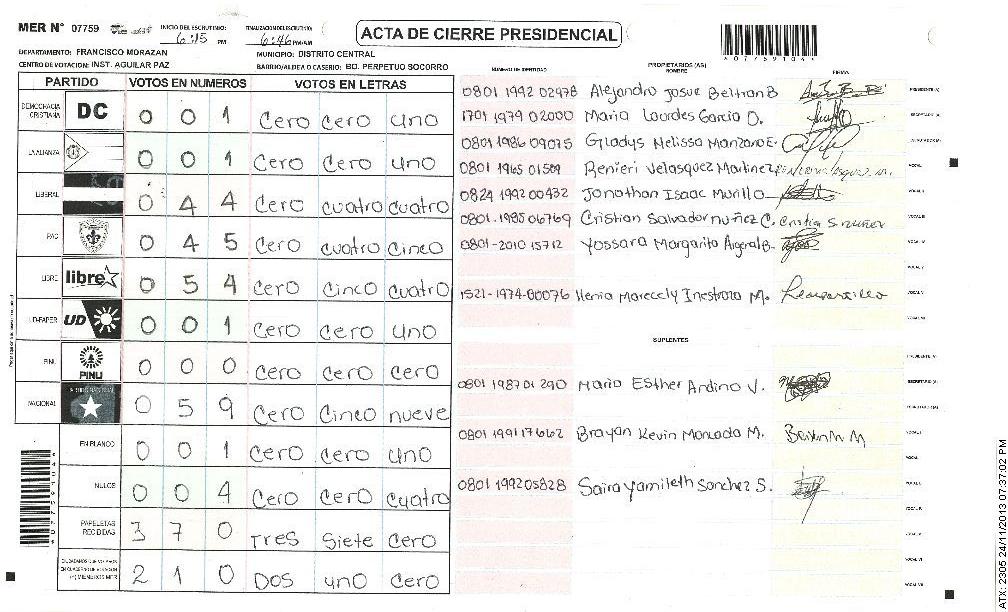 MER N° 07759 INICIO DEL ESCRUTINIO: 6:15 PM FINALIZACION DEL ESCRUTINIO: 6:46 PM/AM
ACTA DE CIERRE PRESIDENCIAL
*07759104*
DEPARTAMENTO: FRANCISCO MORAZAN MUNICIPIO: DISTRITO CENTRAL
CENTRO DE VOTACION: INST. AGUILAR PAZ BARRIO/ALDEA O CASERIO: BO. PERPETUO SOCORRO
PARTIDO VOTOS EN NUMEROS VOTOS EN LETRAS
DEMOCRACIA CRISTIANA DC 0 0 1 Cero cero uno
LA ALIANZA 0 0 1 Cero Cero uno
LIBERAL 0 4 4 Cero cuatro cuatro
PAC 0 4 5 Cero cuatro Cinco
LIBRE libre 0 5 4 Cero Cinco cuatro
UD-FAPER UD 0 0 1 Cero Cero uno
PINU PINU 0 0 0 Cero Cero Cero
NACIONAL 0 5 9 Cero Cinco nueve
EN BLANCO 0 0 1 Cero Cero uno
NULOS 0 0 4 Cero Cero cuatro
PAPELETAS RECIBIDAS 3 7 0 Tres Siete Cero
2 1 0 Dos uno Cero
NUMERO DE IDENTIDAD PROPIETARIOS (AS) NOMBRE FIRMA
0801 1992 02978 Alejandro Josue Beltran B PRESIDENTE (A)
1701 1979 02000 Maria Lourdes Garcia O. SECRETARIO (A)
0801 1986 09075 Gladys Melissa Manzano E.
0801 1965 01509 Renieri Velasquez Martinez VOCAL I
0824 1992 00432 Jonathan Isaac Murillo VOCAL II
0801-1985 06769 Cristian Salvador nuñez C. Cristian S. nuñez VOCAL III
0801-2010 15712 Yossara Margarita B. VOCAL IV
VOCAL V
1521-1974-00076 Marecely Inestroza M.
SUPLENTES
PRESIDENTE (A)
0801 1987 01290 Maria Esther Andino V. SECRETARIO (A)
0801 1991 17662 Brayan Kevin Moncada M. VOCAL I
0801 1992 05828 Saira Yamileth Sanchez S.
ATX: 2305 24/11/2013 07:37:02 PM